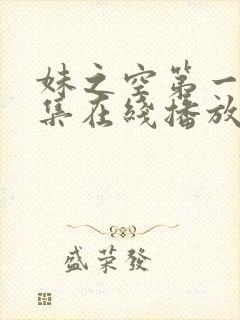 妹之空第一
集在綫播放
盛荣發